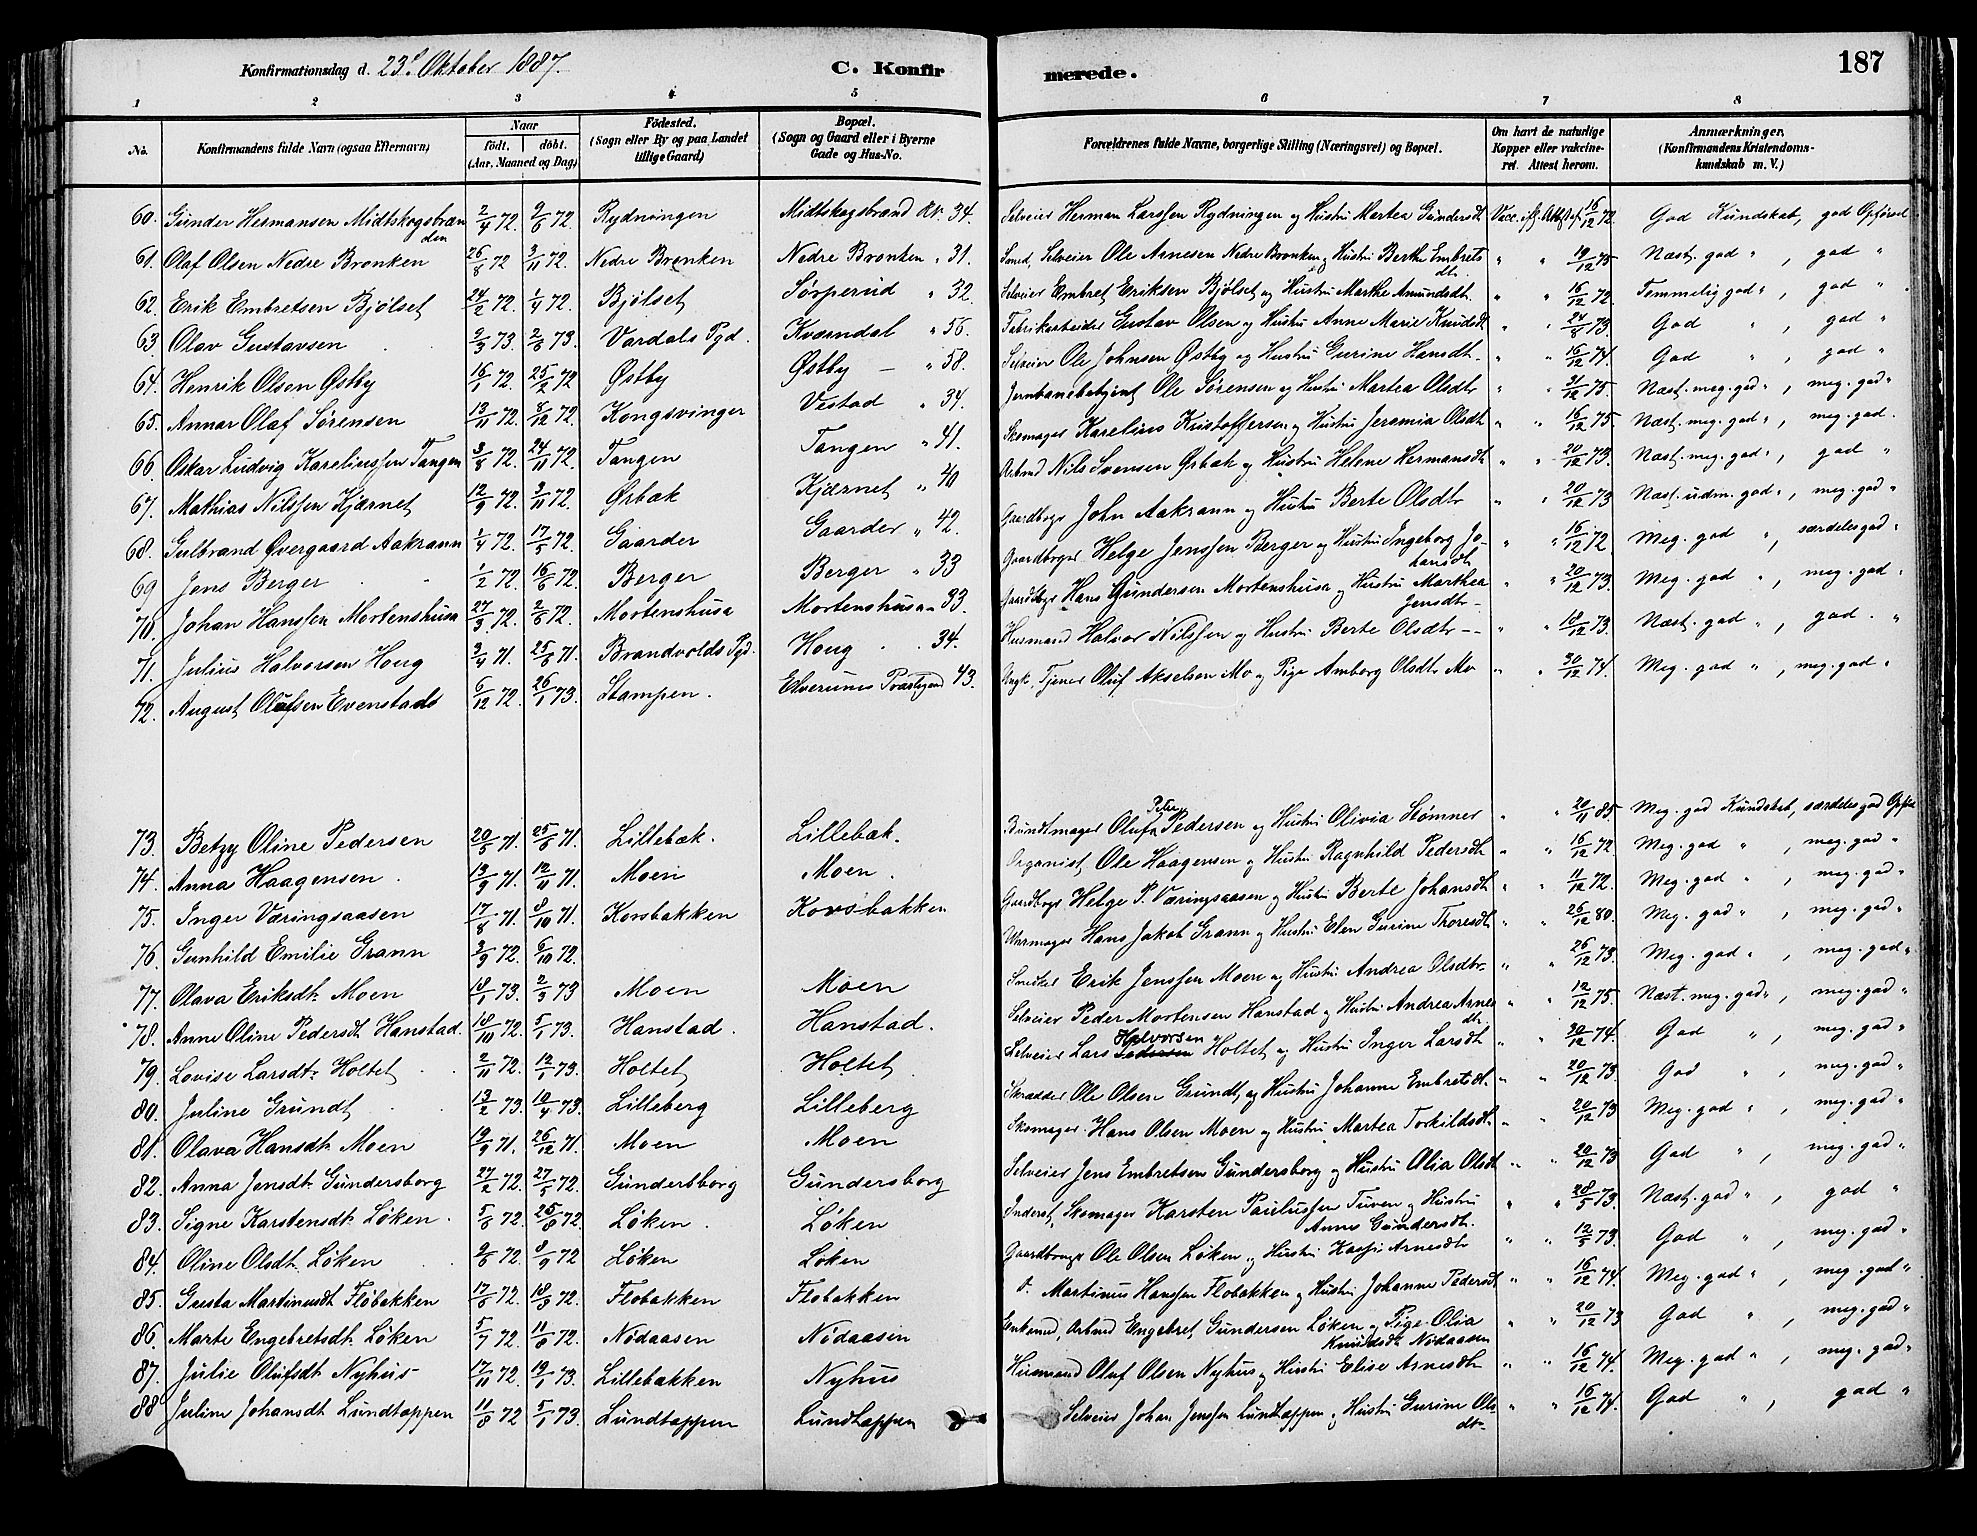 Konfirmationsdag d. 23d Oktober 1887. C. Konfir merede. 187
1 2 3 4 5 6 7 8
No. Konfirmandens fulde Navn (ogsaa Efternavn) Naar født. døbt. (Aar, Maaned og Dag) Fødested. (Sogn eller By og paa Landet tillige Gaard) Bopæl. (Sogn og Gaard eller i Byerne Gade og Hus-No. Forældrenes fulde Navne, borgerlige Stilling (Næringsvei) og Bopæl. Om havt de naturlige Kopper eller vakcineret. Attest herom. Anmærkninger, (Konfirmandens Kristendomskundskab m. V.)
60. Gunder Hermansen Midtskogsbrænden 2/4 72. 9/6 72. Rydningen Midtskogsbrand Kr. 34. Selveier Herman Larssen Rydningen og Hustri Martea Gundersdt Vacc. 16/12 72 God Kundskab, god Opførsel
61. Olaf Olsen Nedre Bronken 26/8 72 3/11 72. Nedre Bronken Nedre Bronken " 31. Smed, Selveier Ole Arnesen Nedre Bronken og Hustri Berthe Embretsdtr. " " 19/12 75 Næst. god " , god "
62. Erik Embretsen Bjölset 24/2 72. 1/4 72. Bjölset Sörperud " 32. Selveier Embret Eriksen Bjölset og Hustri Marthe Amundsdt. " " 16/12 72. Temmelig god " , god "
63 Olav Gustavsen 9/3 73. 2/6 73. Vardals Pgd. Kværndal " 56. Fabrikarbeider Gustav Olsen og Hustri Anne Marie Knudsdt " " 24/8 73. God " , god "
64. Henrik Olsen Østby 16/1 72. 25/2 72 Østby Østby — " 58. Selveier Ole Johnsen Østby og Hustri Gurine Hansdt. " " 16/12 74. God " , god "
65. Annar Olaf Sörensen 13/11 72. 8/12 72. Kongsvinger Vestad " 34. Jernbanebetjent Ole Sörensen og Hustri Martea Olsdtr " " 31/12 75. Næst. meg. god " , meg. god "
66. Oskar Ludvig Kareliussen Tangen 3/8 72. 24/11 72. Tangen Tangen " 41. Skomager Karelius Kristoffersen og Hustri Jeremia Olsdt " " 16/12 75 Næst. meg. god " , meg. god.
67. Mathias Nilssen Kjærnet 12/9 72. 3/11 72. Øsbæk Kjærnet " 40 Arbmd Nils Svensen Øsbæk og Hustri Helene Hermansdt " " 20/12 73. Næst. meg. god " , god "
68. Gulbrand Øvergaard Aakrann 1/4 72. 17/5 72. Gaarder Gaarder " 42. Gaardbrgr John Aakrann og Hustri Berte Olsdtr " " 20/12 73 Næst. udm. god " , meg. god "
69 Jens Berger 1/2 72. 16/6 72. Berger Berger " 33 Gaardbruger Helge Jenssen Berger og Hustri Ingeborg Johansdt " " 16/12 72 Meg. god " , særdeles god "
70. Johan Hanssen Mortenshusa 27/3 72. 2/6 72. Mortenshusa Mortenshusa " 33. Gaardbrgr Hans Gundersen Mortenshusa og Hustri Marthea Jensdtr " " 20/12 73. Meg. god " , meg. god "
71. Julius Halvorsen Houg 3/4 71. 25/6 71. Brandvolds Pgd. Houg 34. Husmand Halvor Nilssen og Hustri Berte Olsdtr " " 18/12 73. Næst. god " , god "
72. August Olufsen Evenstads 6/12 72. 26/1 73. Stampen. Elverums Præstegaard 43. Ungk., Tjener Oluf Akselsen Mo og Pige Amborg Olsdtr Mo " " 30/12 74. Meg. god " , meg. god "
73. Betzy Oline Pedersen 20/5 71. 25/6 71. Lillebæk. Lillebæk. Bundtmager Oluf Peter Pedersen og Hustri Olivia Stømner " " 20/11 85 Meg. god Kundskab, særdeles god Opførs
74. Anna Haagensen 13/9 71. 12/11 71. Moen Moen. Organist Ole Haagensen og Hustri Ragnhild Pedersdtr " " 16/12 72. Meg. god " , meg. god "
75. Inger Væringsaasen 17/8 71. 8/10 71. Korsbakken Korsbakken Gaardbrgr Helge P. Væringsaasen og Hustri Berte Johansdt " " 11/12 72. Meg. god " , meg. god "
76. Gunhild Emilie Grann 3/9 72. 6/10 72. Uhrmager Hans Jakob Grann og Hustri Elen Gurine Thoresdt " " 26/12 80. Meg. god " , meg. god "
77. Olava Eriksdt. Moen 18/1 73. 2/3 73 Moen Moen Erik Jenssen Moen og Hustri Andrea Olsdtr " " 26/12 73. Meg. god " , meg. god "
78. Anne Oline Pedersdt Hanstad. 18/10 72. 5/1 73. Hanstad. Hanstad. Selveier Peder Mortensen Hanstad og Hustri Andrea Arnesdtr. " " 12/12 75. Næst. meg. god " , meg. god "
79. Lovise Larsdt. Holtet 2/11 72. 12/1 73. Holtet Holtet Selveier Lars Halvorsen Holtet og Hustri Inger Larsdt " " 30/12 74. God " , meg. god "
80. Juline Grundt 13/2 73. 10/4 73. Lilleberg Lilleberg Skrædder Ole Olsen Grundt, og Hustri Johanne Embretsdt. " " 20/12 73. God " , meg. god "
81. Olava Hansdt. Moen 19/9 71. 26/12 71. Moen Moen Skomager. Hans Olsen Moen og Hustri Martea Torkildsdt. " " 20/12 73 Meg. god " , meg. god "
82. Anna Jensdt. Gundersborg 27/2 72. 27/5 72. Gundersborg Gundersborg Selveier Jens Embretsen Gundersborg og Hustri Olia Olsdt " " 20/12 73 God " , meg. god "
83. Signe Karstensdt. Løken 5/6 72. 25/8 72. Løken Løken Inderst, Skomager Karsten Paulussen Tuven og Hustri Anne Gundersdt. " " 28/5 73. Næst. god " , god "
84. Oline Olsdt. Løken 9/6 72. 8/9 72 Løken Løken Gaardbruger Ole Olsen Løken og Hustri Kassi Arnesdtr " " 12/5 73. God " , meg. god "
85. Gusta Martinusdt Flöbakken 17/6 72. 18/8 72. Flobakken Flobakken Martinus Hanssen Flobakken og Hustri Johanne Pedersdt " " 16/12 74. Meg. god " , meg. god "
86. Marte Engebretsdt. Løken 5/7 72. 11/8 72. Nödaasen Nödaasen Enkemd, Arbmd Engebret Gundersen Løken og Pige Olia Knudsdt Nödaasen " " 20/12 73 God " , meg. god "
87. Julie Olufsdt Nyhus 17/11 72. 19/1 73. Lillebakken Nyhus Husmand Oluf Olsen Nyhus og Hustri Elise Arnesdtr " " 16/12 74. Meg. god " , meg. god "
88 Juline Johansdt Lundtoppen 11/8 72 5/1 73. Lundtoppen Lundtoppen Selveier Johan Jenssen Lundtoppen og Hustri Gurine Olsdtr " " 16/12 74. God " , god "